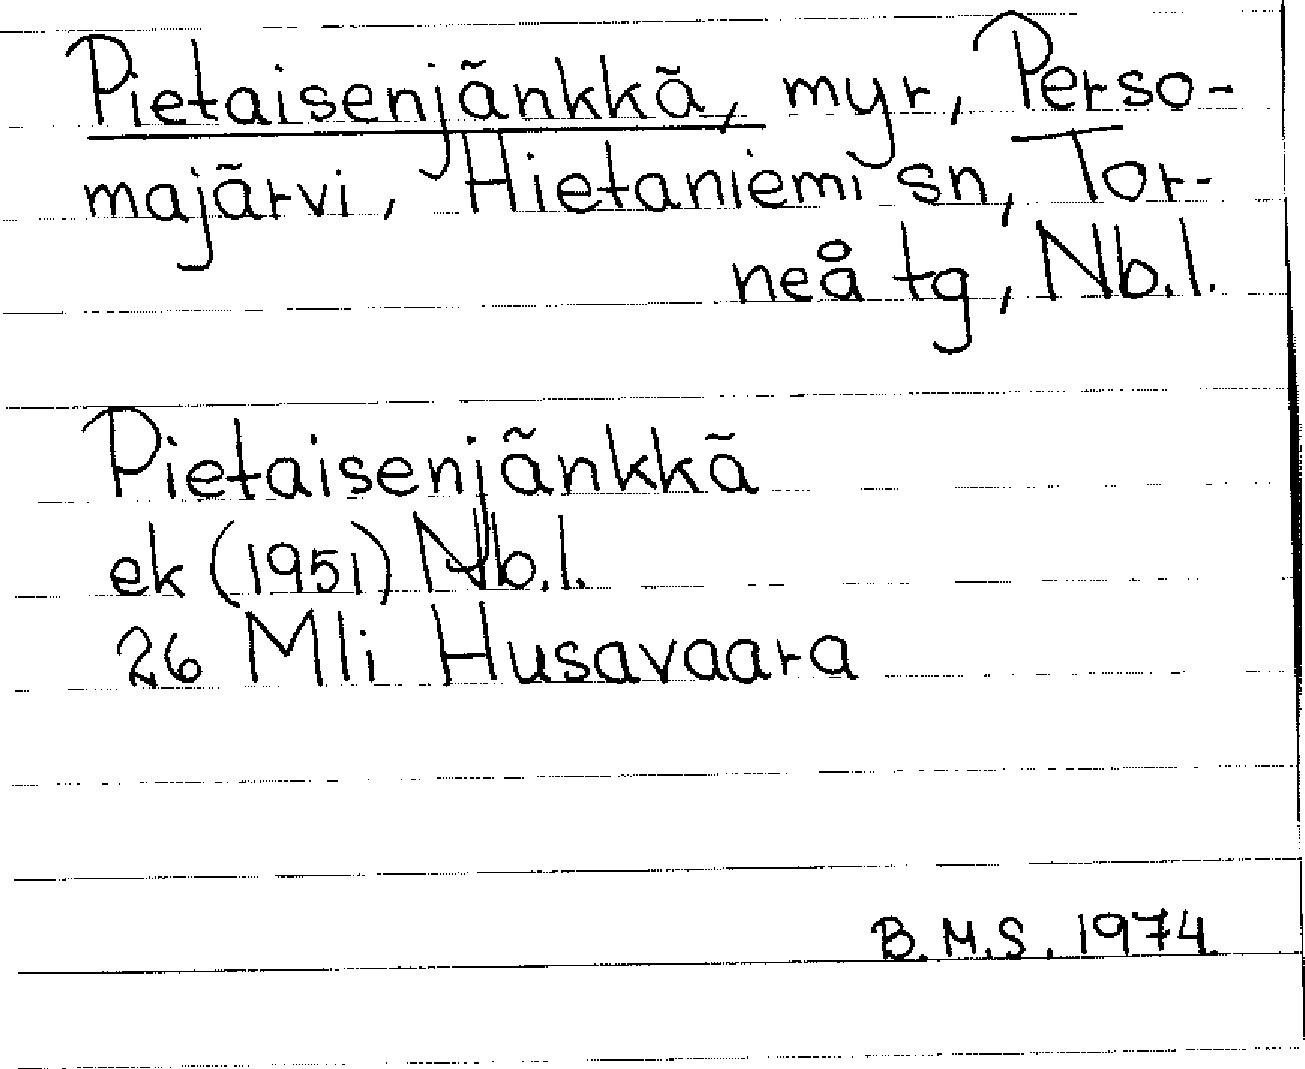 Pietaisenjänkkä, myr, Perso-
majärvi, Hietaniemi sn, Tor-
neå tg, Nb.l.
Pietaisenjänkkä
ek (1951) Nb.l.
26 Mli Husavaara
B.M.S. 1974.